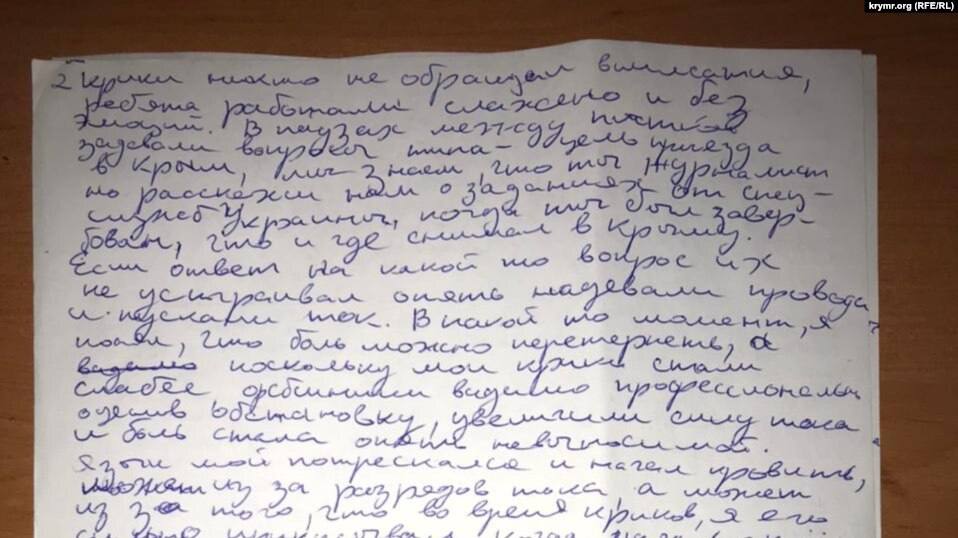 krymr.org (RFE/RL)
2 крики никто не обращал внимания,
ребята работали слажено и без
эмоций. В паузах между пытков
задавали вопросы типа - цель приезда
в Крым, мы знаем, что ты журналист
но расскажи нам о заданиях от спец-
служб Украины, когда ты был завер-
бован, что и где снимал в Крыму.
Если ответ на какой то вопрос их
не устраивал опять надевали провода
и пускали ток. В какой то момент, я
понял, что боль можно перетерпеть, а
видимо поскольку мои крики стали
слабее фсбшники видимо профессионально
оценив обстановку, увеличили силу тока
и боль стала опять невыносимой.
Язык мой потрескался и начал кровить,
может из за разрядов тока, а может
из за того, что во время криков, я его
сильно когда